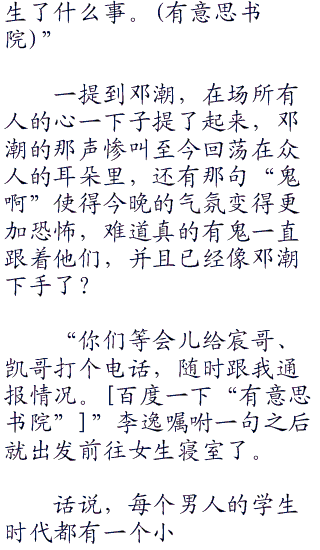 生了什么事。(有意思书
院)”
一提到邓潮，在场所有
人的心一下子提了起来，邓
潮的那声惨叫至今回荡在众
人的耳朵里，还有那句“鬼
啊”使得今晚的气氛变得更
加恐怖，难道真的有鬼一直
跟着他们，并且已经像邓潮
下手了？
“你们等会儿给宸哥、
凯哥打个电话，随时跟我通
报情况。[百度一下“有意思
书院”]”李逸嘱咐一句之后
就出发前往女生寝室了。
话说，每个男人的学生
时代都有一个小